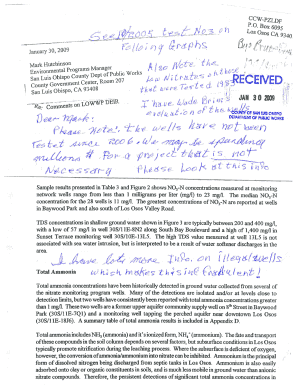 CCW-PZLDF
P.O. Box 6095
Los Osos CA 9341
See 10/2005 test No3 on
Following Graphs
January 30, 2009
Mark Hutchinson
Environmental Programs Manager
San Luis Obispo County Dept of Public Works
County Government Center, Room 207
San Luis Obispo, CA 93408
Also Note the
Low Nitrates on those
that were tested 1983
RECEIVED
JAN 30 2009
COUNTY OF SAN LUIS OBISPO
DEPARTMENT OF PUBLIC WORKS
Re: Comments on LOWWP DEIR
I have
evaluation of the wells
Dear Mark:
Please Note! The wells have not been
Tested since 2006. We may be spending
millions $ For a project that is not
Necessary Please look at this info
Sample results presented in Table 3 and Figure 2 shows NO3-N concentrations measured at monitoring
network wells range from less than 1 milligrams per liter (mg/l) to 23 mg/l. The median NO3-N
concentration for the 28 wells is 11 mg/l. The greatest concentrations of NO3-N are reported at wells
in Baywood Park and also south of Los Osos Valley Road.
TDS concentrations in shallow ground water shown in Figure 1 are typically between 200 and 400 mg/l,
with a low of 57 mg/l in well 30S/11E-8N2 along South Bay Boulevard and a high of 1,400 mg/l in
Sunset Terrace monitoring well 30S/10E-13L5. The high TDS value measured at 13L5 is not
associated with sea water intrusion, but is interpreted to be a result of water softener discharges in the
area.
I have lots more Info. on illegal wells
which makes this info Fraudulent!
Total Ammonia
Total ammonia concentrations have been historically detected in ground water collected from several of
the nitrate monitoring program wells. Many of the detections are isolated and/or at levels close to
detection limits, but two wells have consistently been reported with total ammonia concentrations greater
than 1 mg/l. These two wells are a former upper aquifer community supply well on 8th Street in Baywood
Park (30S/11E-7Q1) and a monitoring well tapping the perched aquifer near downtown Los Osos
(30S/11E-8N2). A summary table of total ammonia results is included in Appendix D.
Total ammonia includes NH3 (ammonia) and it's ionized form, NH4+ (ammonium). The fate and transport
of these compounds in the soil column depends on several factors, but subsurface conditions in Los Osos
typically promote nitrification during the leaching process. Where the subsurface is deficient of oxygen,
however, the conversion of ammonia/ammonium into nitrate can be inhibited. Ammonium is the principal
form of dissolved nitrogen being discharged from septic tanks in Los Osos. Ammonium is also easily
adsorbed onto clay or organic constituents in soils, and is much less mobile in ground water than anionic
nitrate compounds. Therefore, the persistent detections of significant total ammonia concentrations in